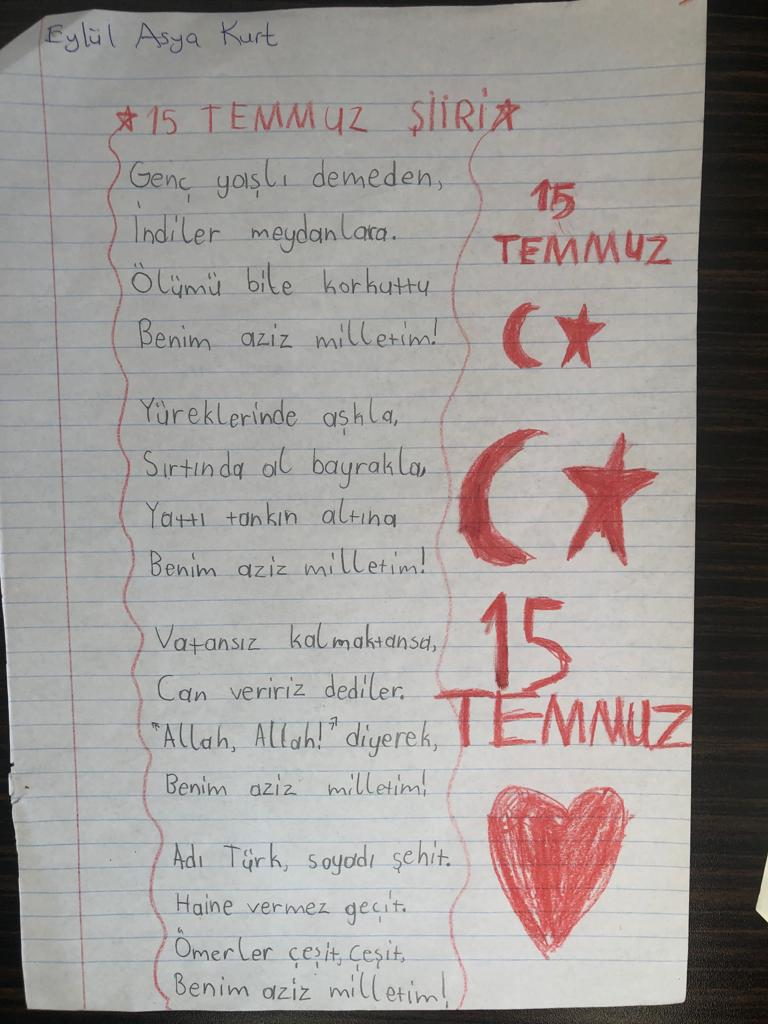 Eylül Asya Kurt
★15 TEMMUZ ŞİİRİ★
Genç yaşlı demeden,
İndiler meydanlara.
Ölümü bile korkuttu
Benim aziz milletim!
Yüreklerinde aşkla,
Sırtında al bayrakla,
Yattı tankın altına
Benim aziz milletim!
Vatansız kalmaktansa,
Can veririz dediler.
"Allah, Allah!" diyerek,
Benim aziz milletim!
Adı Türk, soyadı şehit.
Haine vermez geçit.
Ömerler çeşit, çeşit,
Benim aziz milletim!
15
TEMMUZ
15
TEMMUZ